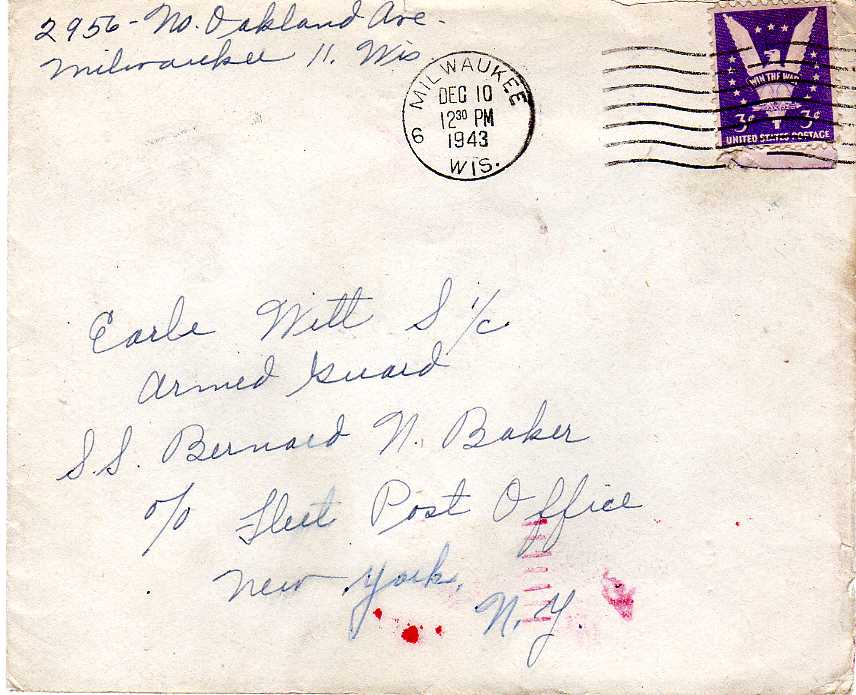 2956 - No. Oakland Ave.
Milwaukee 11. Wis
MILWAUKEE
DEC 10
12³⁰ PM
1943
6
WIS.
WIN THE WAR
3¢ 3¢
UNITED STATES POSTAGE
Earle Witt S 1/c
Armed Guard
S.S. Bernard N. Baker
c/o Fleet Post Office
New York,
N.Y.